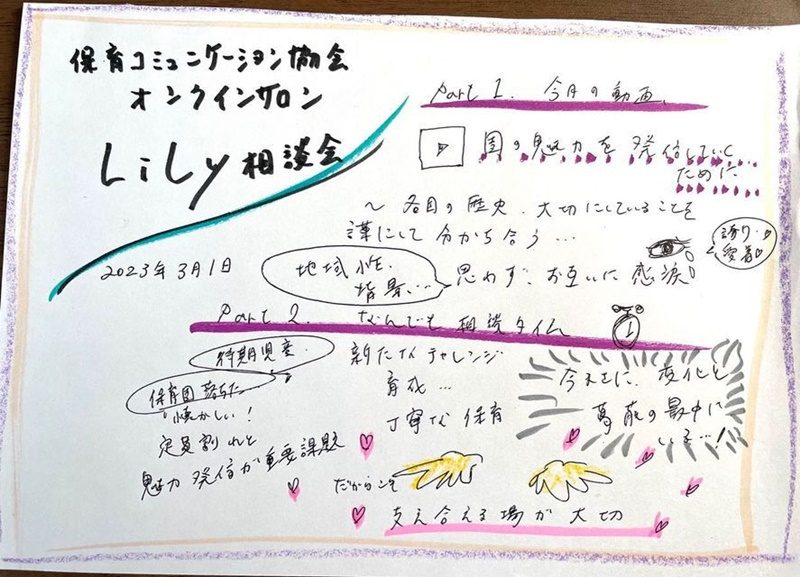 保育コミュニケーション協会
オンラインサロン
Lily 相談会
2023年3月1日
Part 1. 今月の動画
園の魅力を発信していく
ために
〜 各自の歴史、大切にしていることを
漢にして分かち合う…
地域性
背景…
思わず、お互いに感涙!
誇り
愛着
Part 2. なんでも相談タイム
待期児童
保育園落ちた
懐かしい!
定員割れと
魅力発信が重要課題
新たなチャレンジ
育成…
丁寧な保育
今まさに、変化と
葛藤の最中に
いる…!
だからこそ
支え合える場が大切